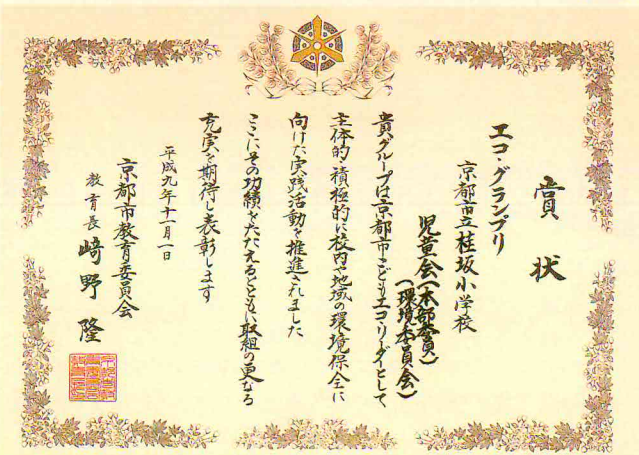 賞状
エコ・グランプリ
京都市立桂坂小学校
児童会(本部委員)
(環境委員会)
貴グループは京都市こどもエコリーダーとして
主体的・積極的に校内や地域の環境保全に
向けた実践活動を推進されました
ここにその功績をたたえるとともに取組の更なる
充実を期待し表彰します
平成九年十一月一日
京都市教育委員会
教育長 﨑野 隆